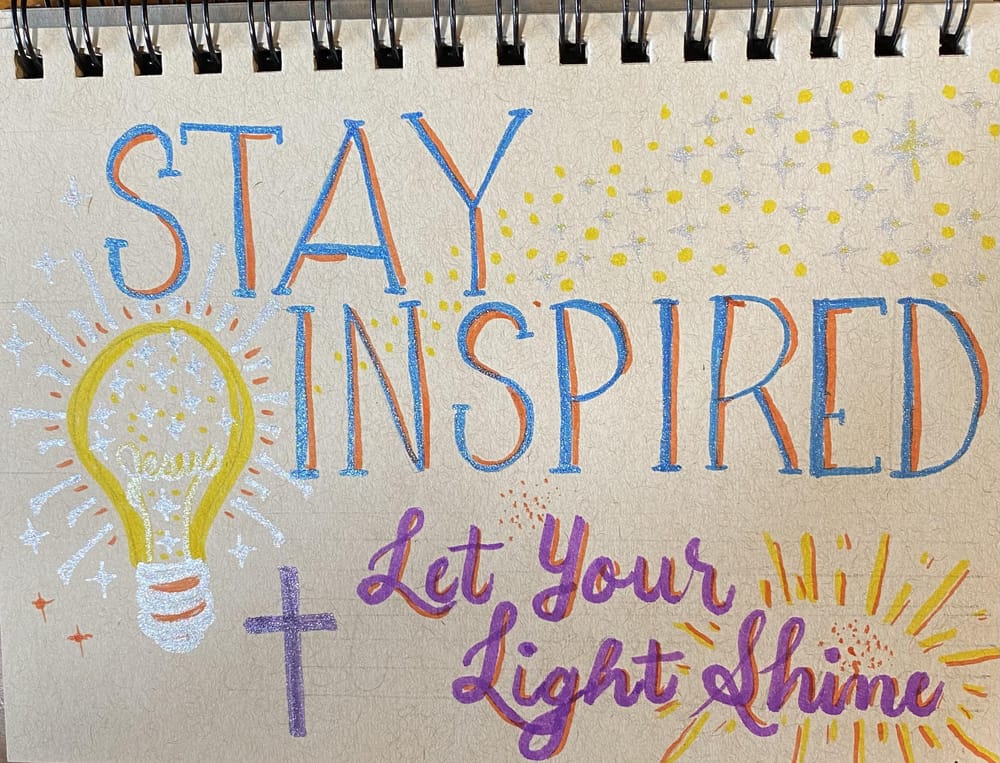 STAY
INSPIRED
Jesus
Let Your
Light Shine